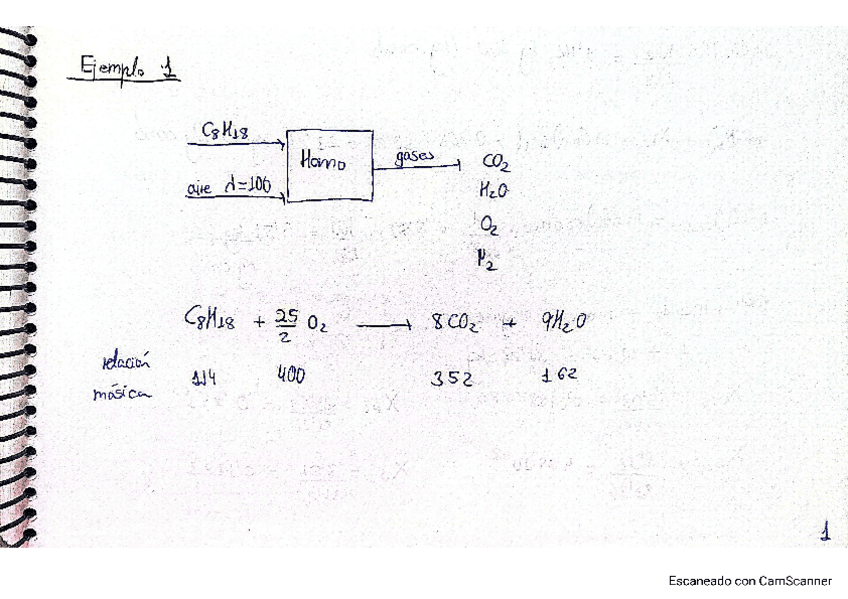 Ejemplo 1
C8H18
aire λ=100
Horno
gases
CO2
H2O
O2
N2
C8H18 + 25/2 O2 → 8CO2 + 9H2O
relación
másica
114 400 352 162
1
Escaneado con CamScanner